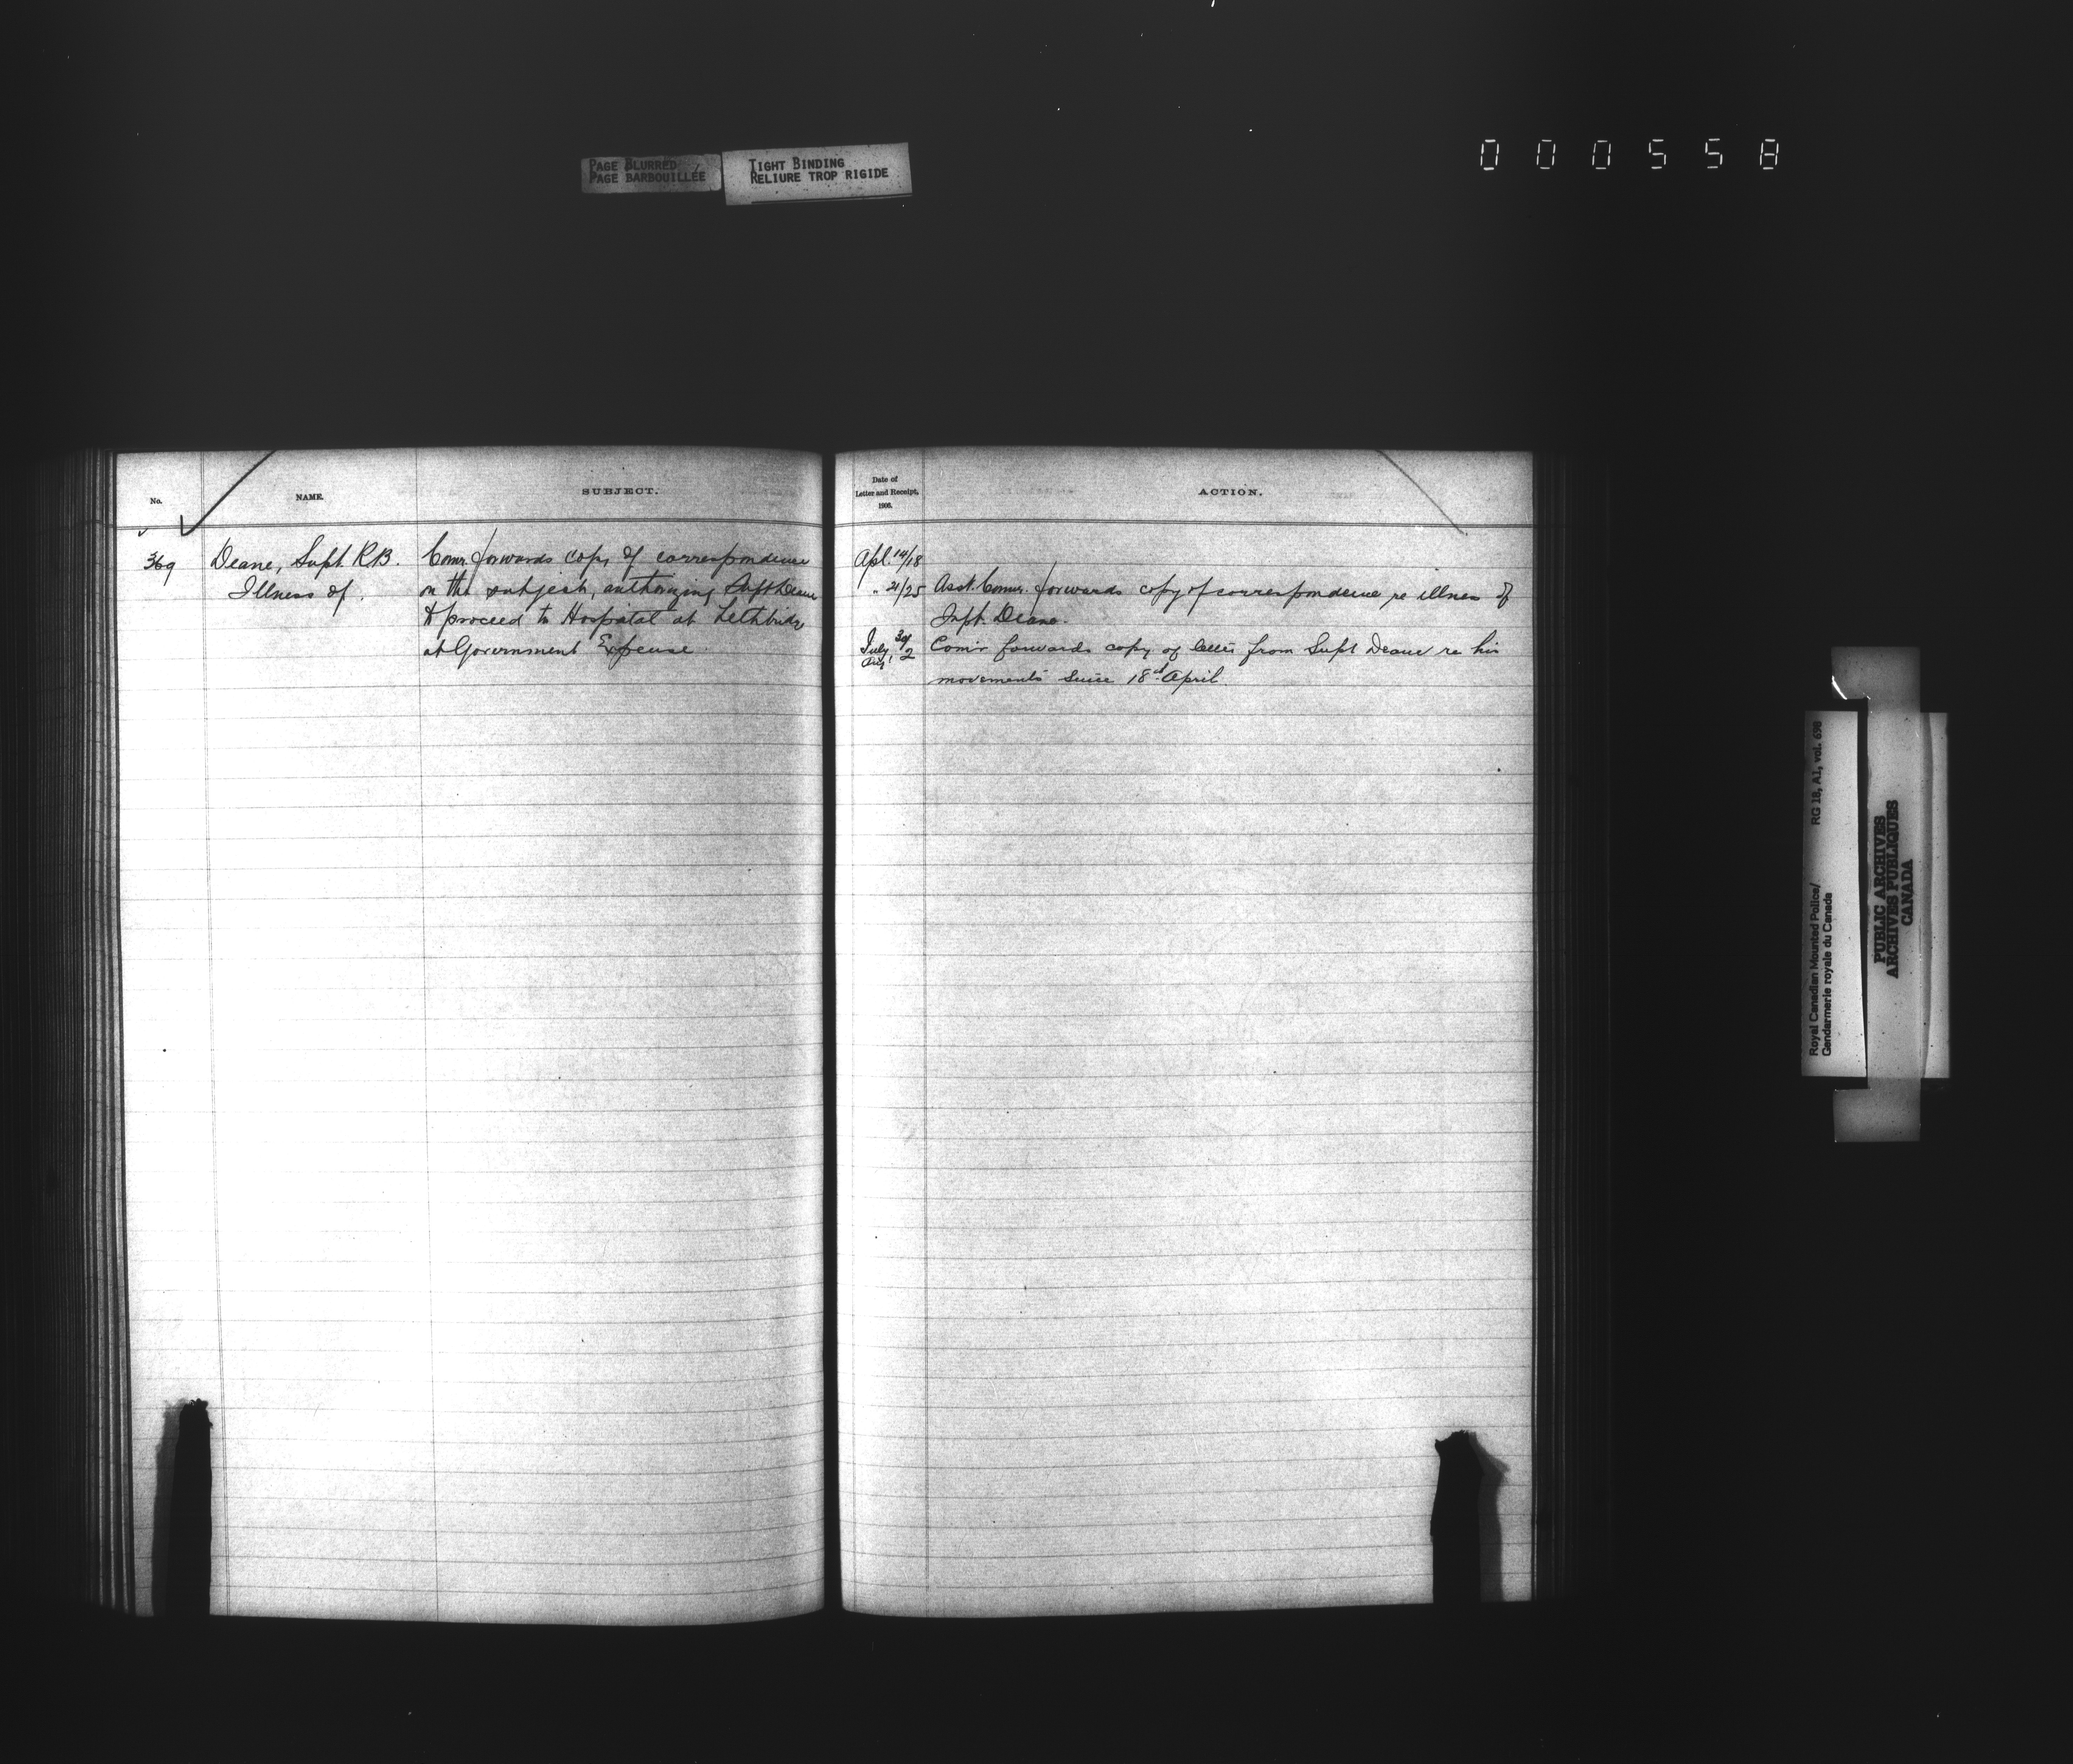 000558
PAGE BLURRED
PAGE BARBOUILLÉE
TIGHT BINDING
RELIURE TROP RIGIDE
No.
NAME.
SUBJECT.
369
Deane, Supt. R.B.
Illness of.
Comr. forwards copy of correspondence
on the subject, authorizing Supt Deane
to proceed to Hospital at Lethbridge
at Government Expense.
Date of
Letter and Receipt,
1906.
ACTION.
Apl. 14/18
" 21/25 Asst. Commr. forwards copy of correspondence re illness of
Supt. Deane.
July 30/
Aug 2 Com'r forwards copy of letter from Supt Deane re his
movements since 18th April.
Royal Canadian Mounted Police/ RG 18, A1, vol. 698
Gendarmerie royale du Canada
PUBLIC ARCHIVES
ARCHIVES PUBLIQUES
CANADA